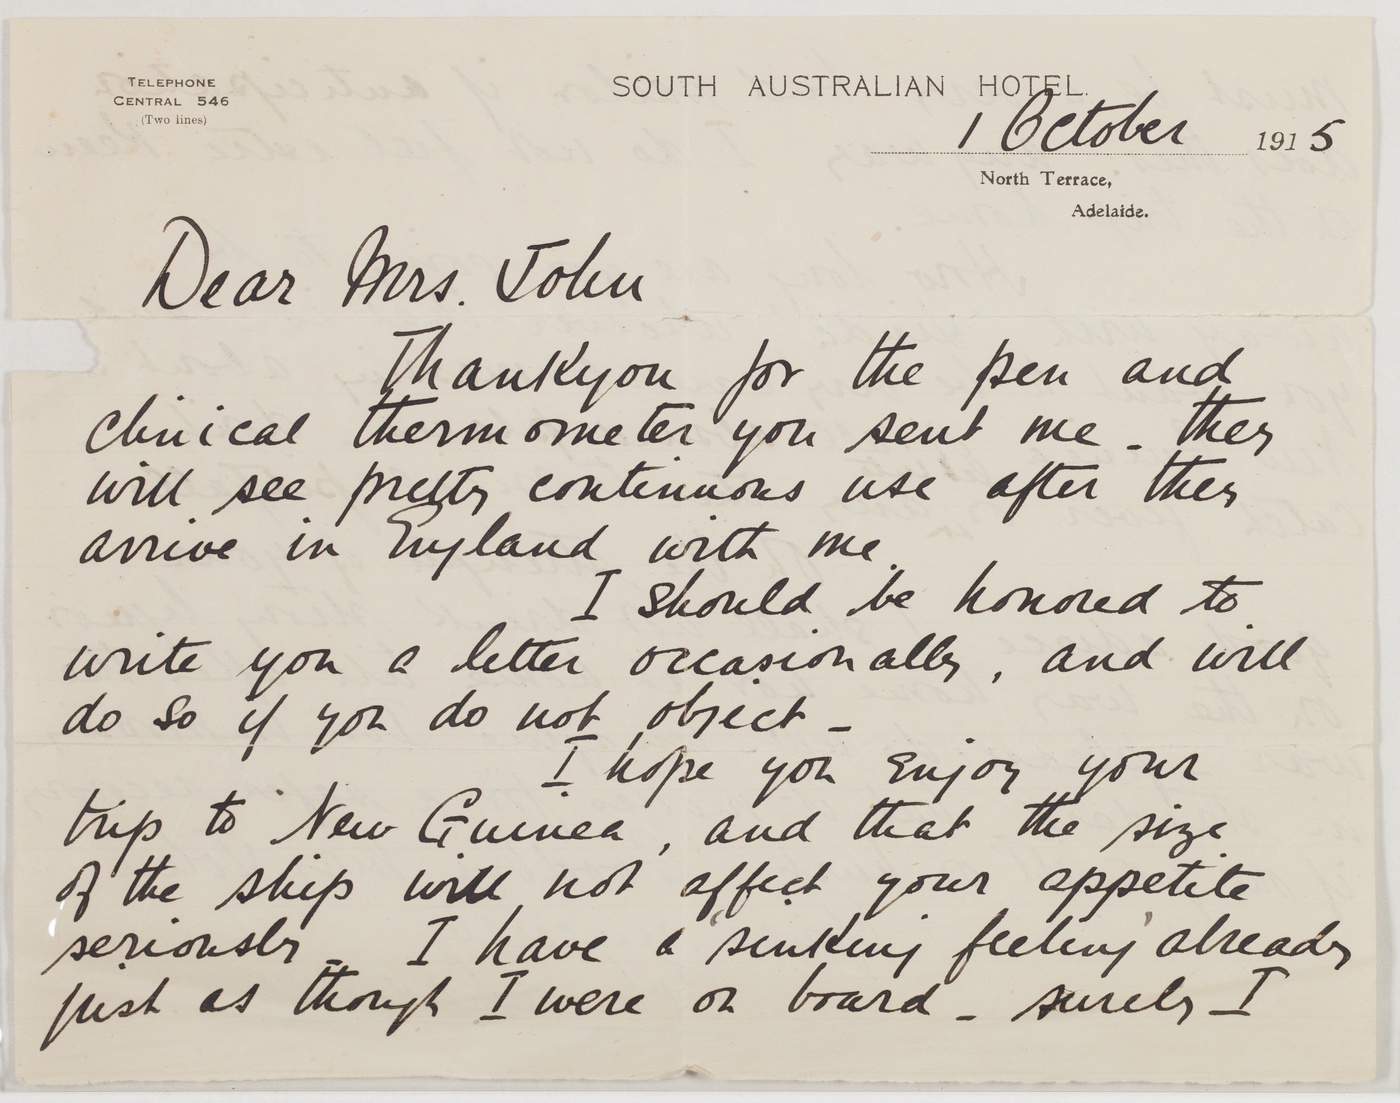 TELEPHONE
CENTRAL 546
(Two lines)
SOUTH AUSTRALIAN HOTEL.
1 October 1915
North Terrace,
Adelaide.
Dear Mrs. John
Thankyou for the pen and
clinical thermometer you sent me - they
will see pretty continuous use after they
arrive in England with me.
I should be honored to
write you a letter occasionally, and will
do so if you do not object -
I hope you enjoy your
trip to New Guinea, and that the size
of the ship will not affect your appetite
seriously - I have a "sinking feeling" already
just as though I were on board - surely I